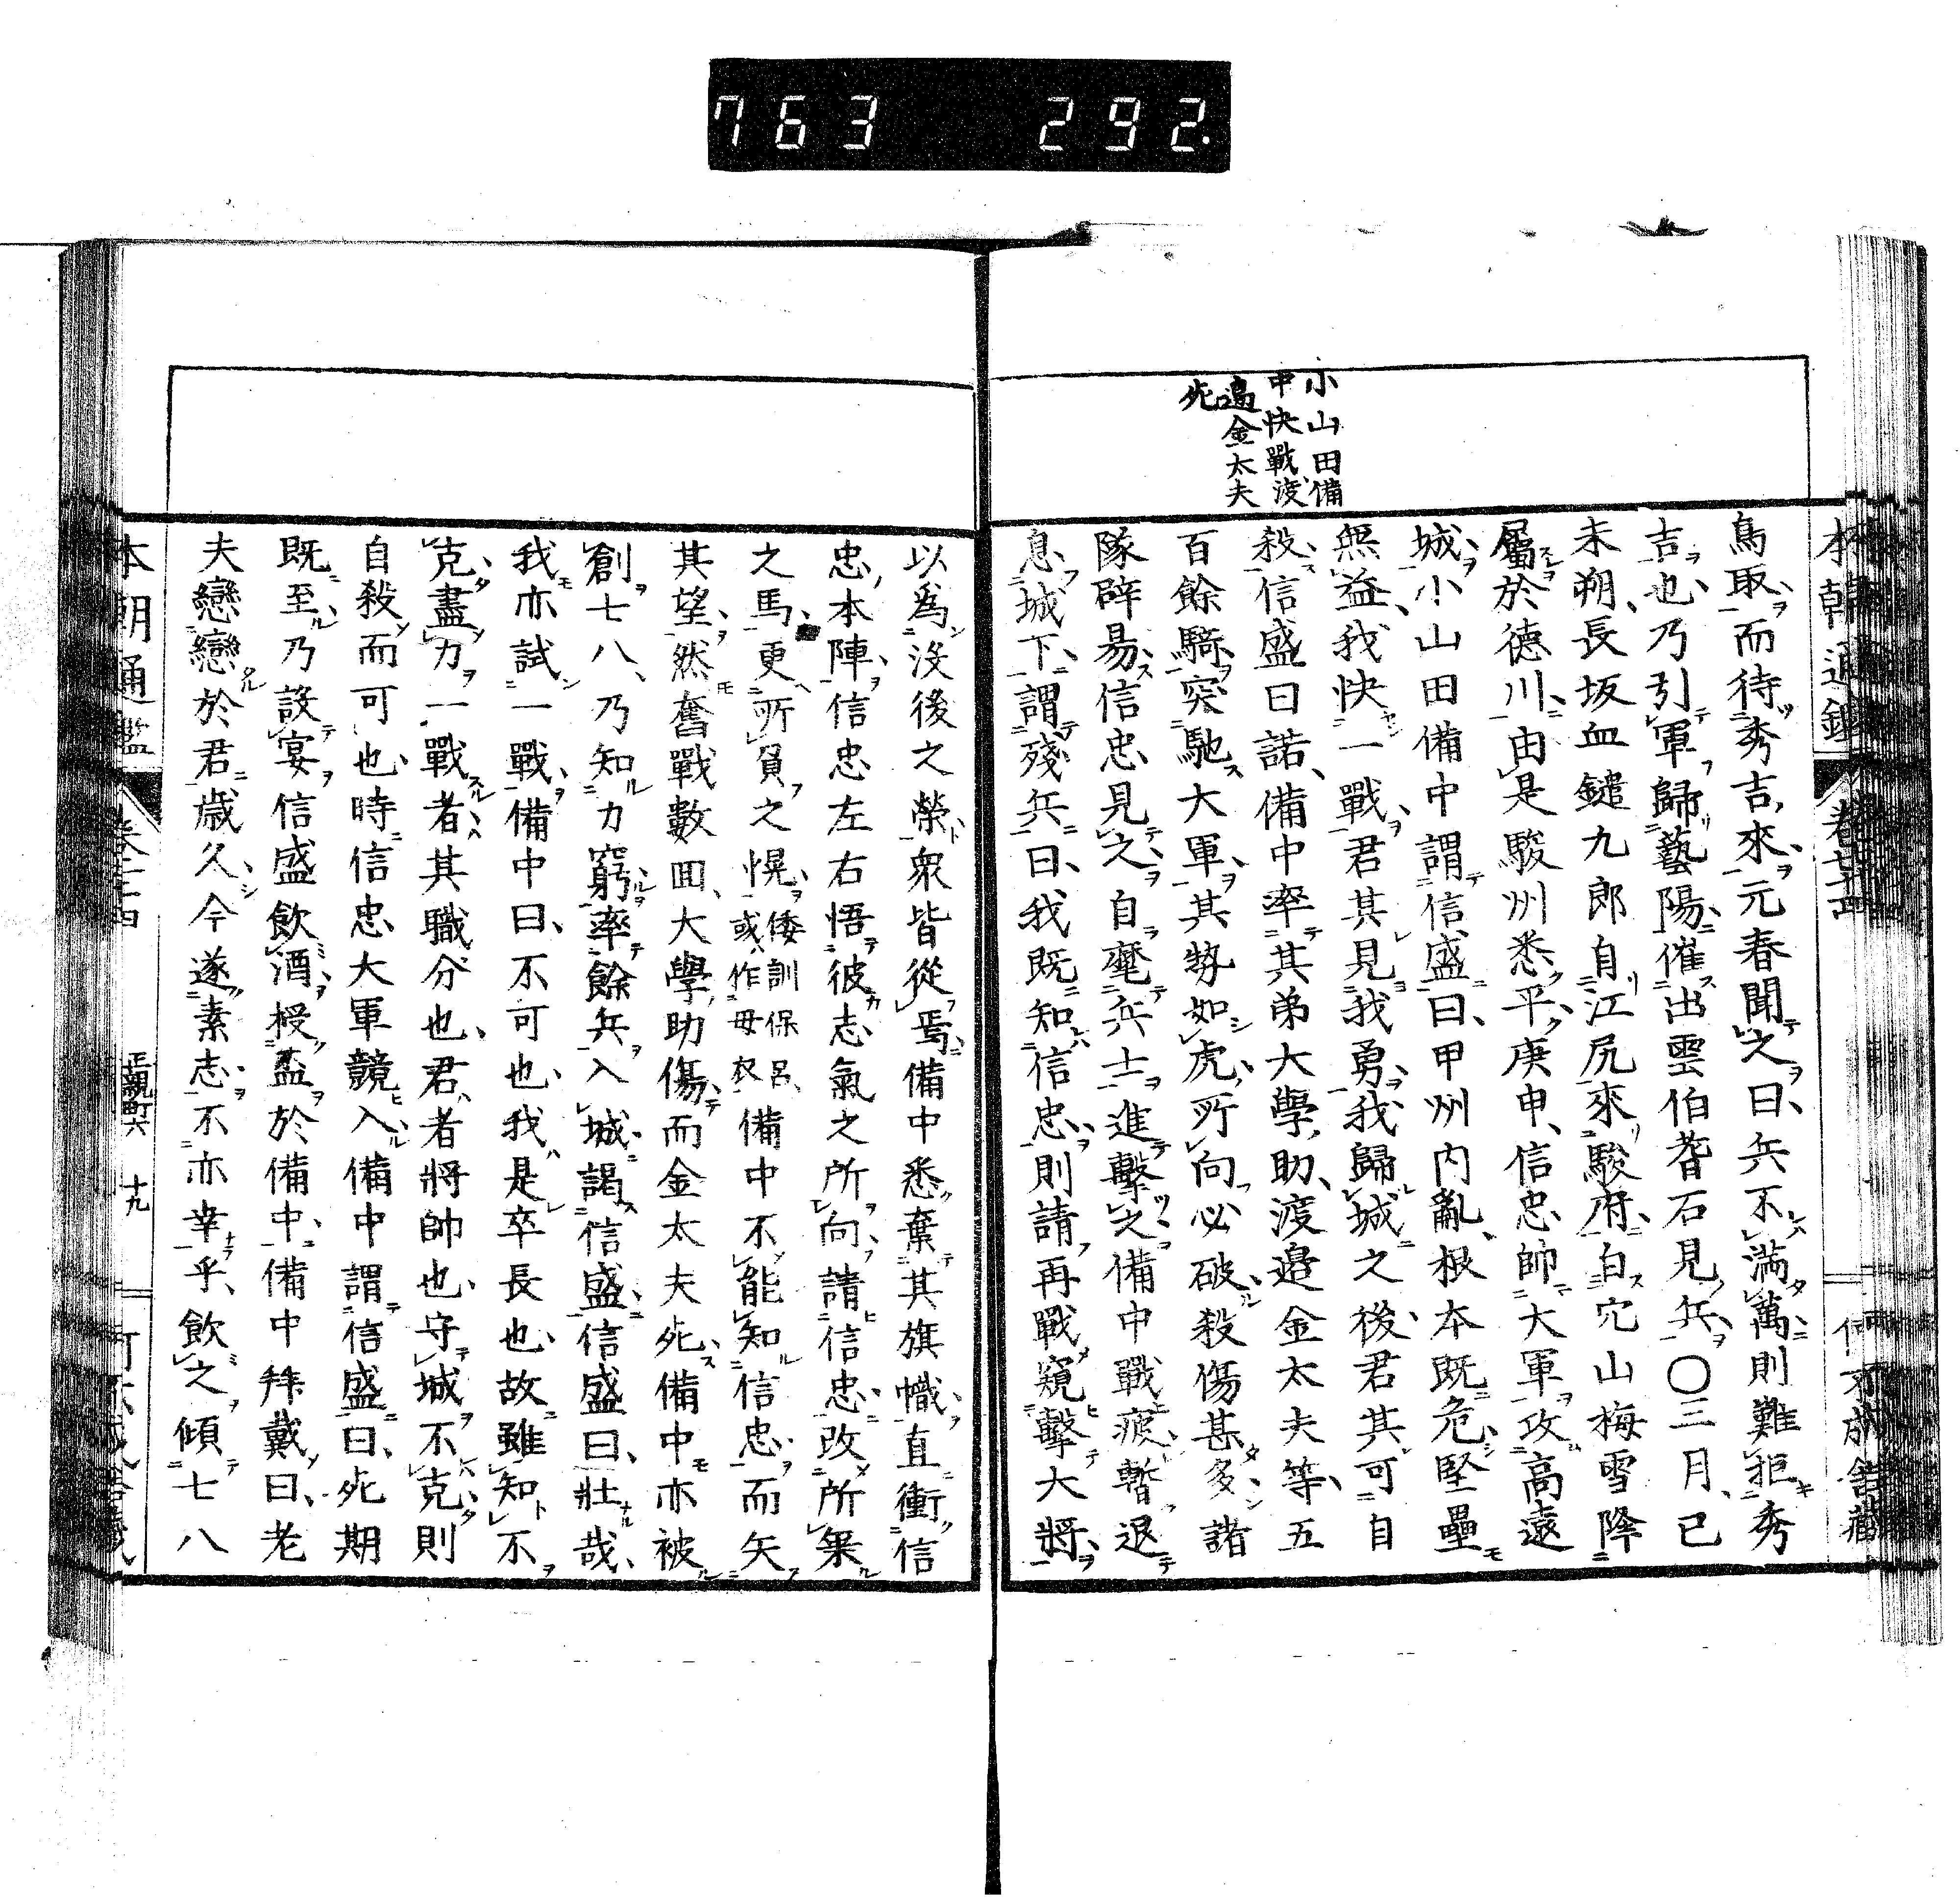 763 292.
小山田備
中快戰、渡
邉金太夫
死
鳥取而待秀吉來元春聞之曰、兵不滿萬則難拒秀
吉也、乃引軍歸藝陽催出雲伯耆石見兵○三月、己
未朔、長坂血鑓九郎自江尻來駿府白穴山梅雪降
屬於德川、由是駿州悉平、庚申、信忠帥大軍攻高遠
城小山田備中謂信盛曰、甲州內亂、根本既危堅壘
無益、我快一戰君其見我勇我歸城之後君其可自
殺、信盛曰諾、備中率其弟大學助、渡邉金太夫等五
百餘騎突馳大軍、其勢如虎、所向必破殺傷甚多、諸
隊辟易、信忠見之自麾兵士進擊之備中戰疲暫退
息城下、謂殘兵曰、我既知信忠、則請再戰窺擊大將
以爲沒後之榮、衆皆從焉、備中悉棄其旗幟直衝信
忠本陣、信忠左右悟彼志氣之所向、請信忠改所乘
之馬、更所負之幌倭訓保呂、或作母衣備中不能知信忠而矢
其望、然奮戰數回、大學助傷而金太夫死備中亦被
創七八、乃知力窮率餘兵入城謁信盛信盛曰、壯哉、
我亦試一戰、備中曰、不可也、我是卒長也、故雖知不
克盡力一戰者其職分也、君者將帥也、守城不克則
自殺而可也、時信忠大軍競入備中謂信盛曰、死期
既至乃設宴信盛飲酒授盃於備中、備中拜戴曰、老
夫戀戀於君歲久今遂素志不亦幸乎、飲之傾七八
本朝通鑑
卷七十四
正親町六
十九